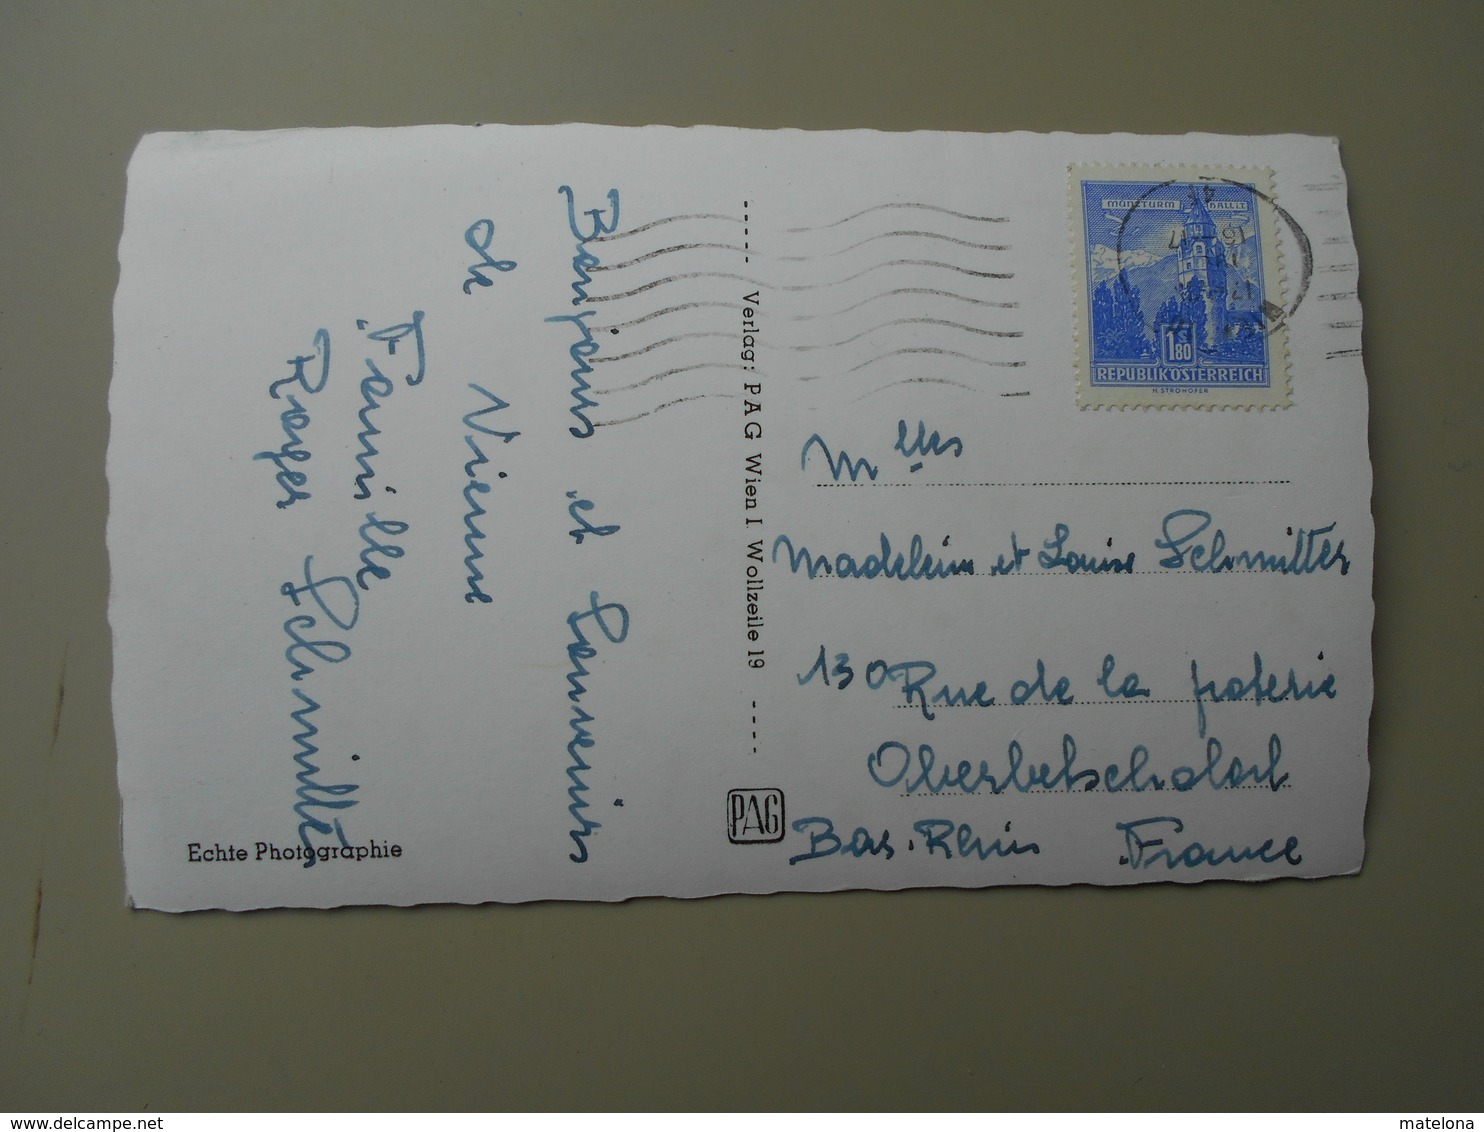 Bonjours et Souvenirs
de Vienne
Famille
Roger Schmitter
Echte Photographie
Verlag: PAG Wien I. Wollzeile 19
PAG
MÜNZTURM HALL i.T.
S
1.80
REPUBLIK ÖSTERREICH
H. STROHOFER
16-17
WIEN
Mlles
Madelein et Louise Schmitter
130 Rue de la poterie
Oberbetschdorf
Bas-Rhin France
delcampe.net
matelona